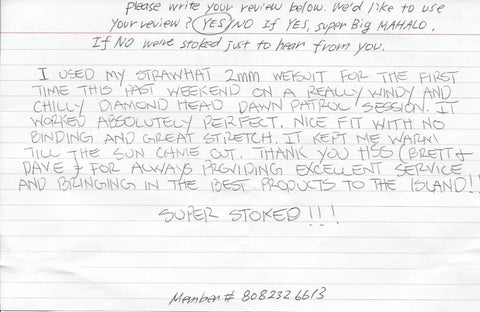 Please write your review below. We'd like to use
your review? YES/NO If YES, super Big MAHALO.
If NO we're stoked just to hear from you.
I USED MY STRAWHAT 2mm WETSUIT FOR THE FIRST
TIME THIS PAST WEEKEND ON A REALLY WINDY AND
CHILLY DIAMOND HEAD DAWN PATROL SESSION. IT
WORKED ABSOLUTELY PERFECT. NICE FIT WITH NO
BINDING AND GREAT STRETCH. IT KEPT ME WARM
TILL THE SUN CAME OUT. THANK YOU HSS (BRETT &
DAVE) FOR ALWAYS PROVIDING EXCELLENT SERVICE
AND BRINGING IN THE BEST PRODUCTS TO THE ISLAND!!
SUPER STOKED!!!
Member# 8082326613